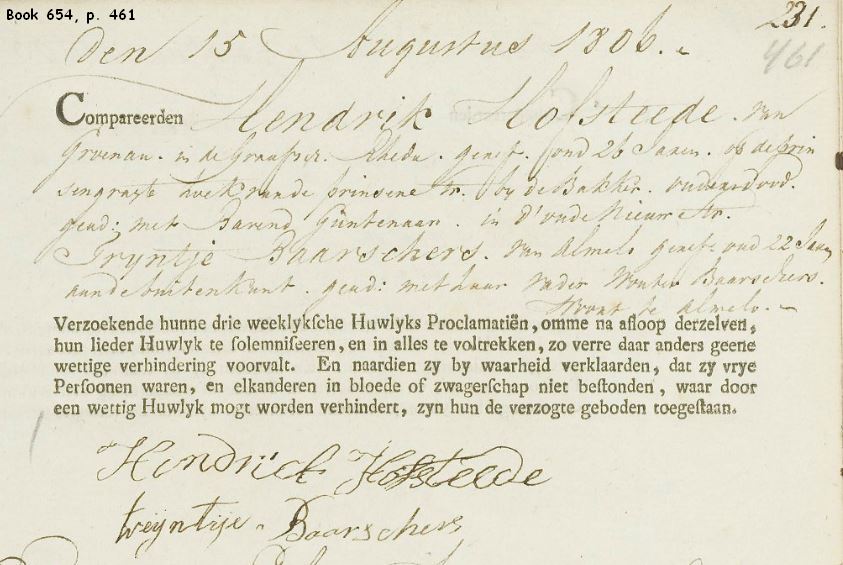 Book 654, p. 461
231.
461
den 15 Augustus 1806.
Compareerden Hendrik Hofsteede. van
Groenau. in de Graafsch. Rheda. geref. oud 26 Jaaren. op de prin
sengragt hoek van de prinsene str. by de Bakker. ouders dood.
gead: met Barend Güntenaar. in d'oude Nieuw str.
Tryntje Baarschers. van Almelo geref oud 22 Jaar
aan de buitenkant. gead: met haar vader Wouter Baarschers.
Woont te Almelo.
Verzoekende hunne drie weeklyksche Huwlyks Proclamatiën, omme na afloop derzelven,
hun lieder Huwlyk te solemniseeren, en in alles te voltrekken, zo verre daar anders geene
wettige verhindering voorvalt. En naardien zy by waarheid verklaarden, dat zy vrye
Persoonen waren, en elkanderen in bloede of zwagerschap niet bestonden, waar door
een wettig Huwlyk mogt worden verhindert, zyn hun de verzogte geboden toegestaan.
Hendrick Hofsteede
treyntije Baarschers